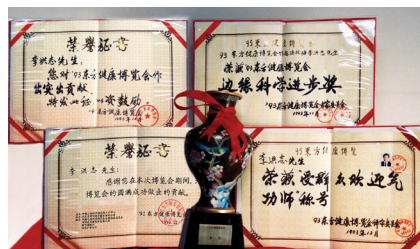 荣誉证书
李洪志先生：
您对'93东方健康博览会作
出突出贡献，
特发此证，以资鼓励。
'93东方健康博览会
1993年12月
'93东方健康博览会
李洪志先生
荣获'93东方健康博览会
边缘科学进步奖
'93东方健康博览会
1993年12月
荣誉证书
李洪志先生：
感谢您在本次博览会期间，为
博览会的圆满成功做出的贡献。
'93东方健康博览会
'93东方健康博览
李洪志先生
荣获受群众欢迎气
功师称号
'93东方健康博览会
1993年12月